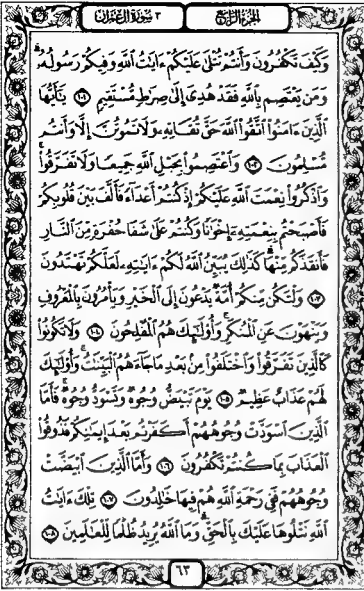 الجزء الرابع
٣ سورة آل عمران
وَكَيْفَ تَكْفُرُونَ وَأَنتُمْ تُتْلَىٰ عَلَيْكُمْ ءَايَٰتُ ٱللَّهِ وَفِيكُمْ رَسُولُهُۥ
وَمَن يَعْتَصِم بِٱللَّهِ فَقَدْ هُدِىَ إِلَىٰ صِرَٰطٍ مُّسْتَقِيمٍ ١٠١ يَٰٓأَيُّهَا
ٱلَّذِينَ ءَامَنُوا۟ ٱتَّقُوا۟ ٱللَّهَ حَقَّ تُقَاتِهِۦ وَلَا تَمُوتُنَّ إِلَّا وَأَنتُم
مُّسْلِمُونَ ١٠٢ وَٱعْتَصِمُوا۟ بِحَبْلِ ٱللَّهِ جَمِيعًا وَلَا تَفَرَّقُوا۟
وَٱذْكُرُوا۟ نِعْمَتَ ٱللَّهِ عَلَيْكُمْ إِذْ كُنتُمْ أَعْدَآءً فَأَلَّفَ بَيْنَ قُلُوبِكُمْ
فَأَصْبَحْتُم بِنِعْمَتِهِۦٓ إِخْوَٰنًا وَكُنتُمْ عَلَىٰ شَفَا حُفْرَةٍ مِّنَ ٱلنَّارِ
فَأَنقَذَكُم مِّنْهَا كَذَٰلِكَ يُبَيِّنُ ٱللَّهُ لَكُمْ ءَايَٰتِهِۦ لَعَلَّكُمْ تَهْتَدُونَ
١٠٣ وَلْتَكُن مِّنكُمْ أُمَّةٌ يَدْعُونَ إِلَى ٱلْخَيْرِ وَيَأْمُرُونَ بِٱلْمَعْرُوفِ
وَيَنْهَوْنَ عَنِ ٱلْمُنكَرِ وَأُو۟لَٰٓئِكَ هُمُ ٱلْمُفْلِحُونَ ١٠٤ وَلَا تَكُونُوا۟
كَٱلَّذِينَ تَفَرَّقُوا۟ وَٱخْتَلَفُوا۟ مِنۢ بَعْدِ مَا جَآءَهُمُ ٱلْبَيِّنَٰتُ وَأُو۟لَٰٓئِكَ
لَهُمْ عَذَابٌ عَظِيمٌ ١٠٥ يَوْمَ تَبْيَضُّ وُجُوهٌ وَتَسْوَدُّ وُجُوهٌ فَأَمَّا
ٱلَّذِينَ ٱسْوَدَّتْ وُجُوهُهُمْ أَكَفَرْتُم بَعْدَ إِيمَٰنِكُمْ فَذُوقُوا۟
ٱلْعَذَابَ بِمَا كُنتُمْ تَكْفُرُونَ ١٠٦ وَأَمَّا ٱلَّذِينَ ٱبْيَضَّتْ
وُجُوهُهُمْ فَفِى رَحْمَةِ ٱللَّهِ هُمْ فِيهَا خَٰلِدُونَ ١٠٧ تِلْكَ ءَايَٰتُ
ٱللَّهِ نَتْلُوهَا عَلَيْكَ بِٱلْحَقِّ وَمَا ٱللَّهُ يُرِيدُ ظُلْمًا لِّلْعَٰلَمِينَ ١٠٨
٦٣